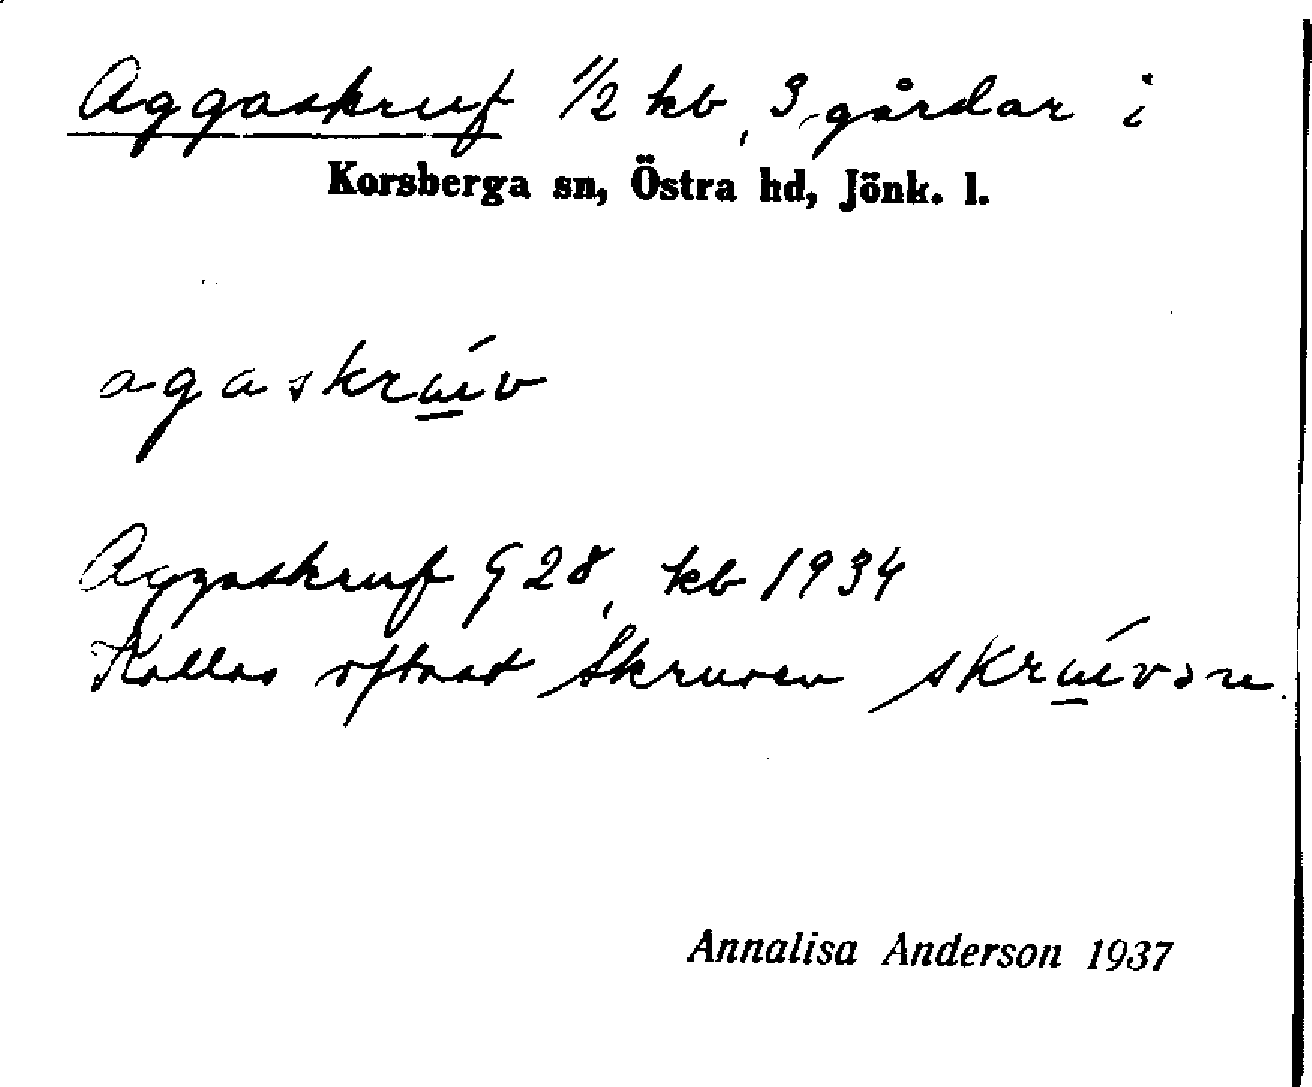 Aggaskruf 1/2 kb, 3 gårdar i
Korsberga sn, Östra hd, Jönk. l.
agaskrúv
Aggaskruf G 28, kb 1934
Kallas oftast Skruven skrúvən
Annalisa Anderson 1937